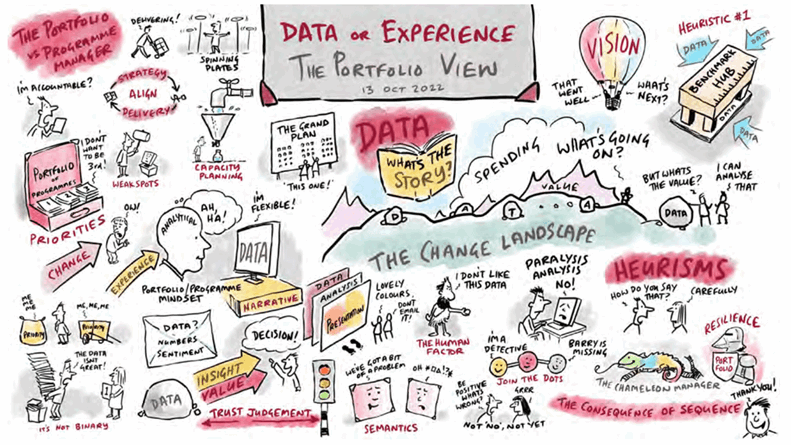 THE PORTFOLIO
VS PROGRAMME
MANAGER
DELIVERING!
SPINNING
PLATES
I'M ACCOUNTABLE?
STRATEGY
ALIGN
DELIVERY
I DON'T
WANT
TO BE
3rd!
PORTFOLIO
OF
PROGRAMMES
PRIORITIES
WEAKSPOTS
CAPACITY
PLANNING
DATA OR EXPERIENCE
THE PORTFOLIO VIEW
13 OCT 2022
THE GRAND
PLAN
"THIS ONE!"
DATA
WHAT'S THE
STORY?
VISION
THAT
WENT
WELL
WHAT'S
NEXT?
HEURISTIC #1
DATA
DATA
BENCHMARK
HUB
DATA
DATA
SPENDING
WHAT'S GOING
ON?
VALUE
BUT WHATS
THE VALUE?
I CAN
ANALYSE
THAT
DATA
D A T A
THE CHANGE LANDSCAPE
OW!
CHANGE
EXPERIENCE
ANALYTICAL
AH,
HA!
I'M
FLEXIBLE!
DATA
NARRATIVE
PORTFOLIO/PROGRAMME
MINDSET
ME
ME
ME
PRIORITY
ME, ME, ME
PRIORITY
THE DATA
ISN'T
GREAT!
IT'S NOT BINARY
DATA?
NUMBERS
SENTIMENT
DECISION!
DATA
INSIGHT
VALUE
TRUST JUDGEMENT
DATA
ANALYSIS
PRESENTATION
LOVELY
COLOURS
DON'T
EMAIL
IT!
I DON'T LIKE
THIS DATA
THE HUMAN
FACTOR
PARALYSIS
ANALYSIS
NO!
WE'VE GOT A BIT
OF A PROBLEM
SEMANTICS
I'M A
DETECTIVE
BARRY IS
MISSING
JOIN THE DOTS
BE
POSITIVE
WHATS
WRONG?
GRRR
'NOT 'NO', NOT YET
HEURISMS
HOW DO YOU SAY
THAT?
CAREFULLY
RESILIENCE
PORT
FOLIO
THE CHAMELEON MANAGER
THE CONSEQUENCE OF SEQUENCE
THANK YOU!